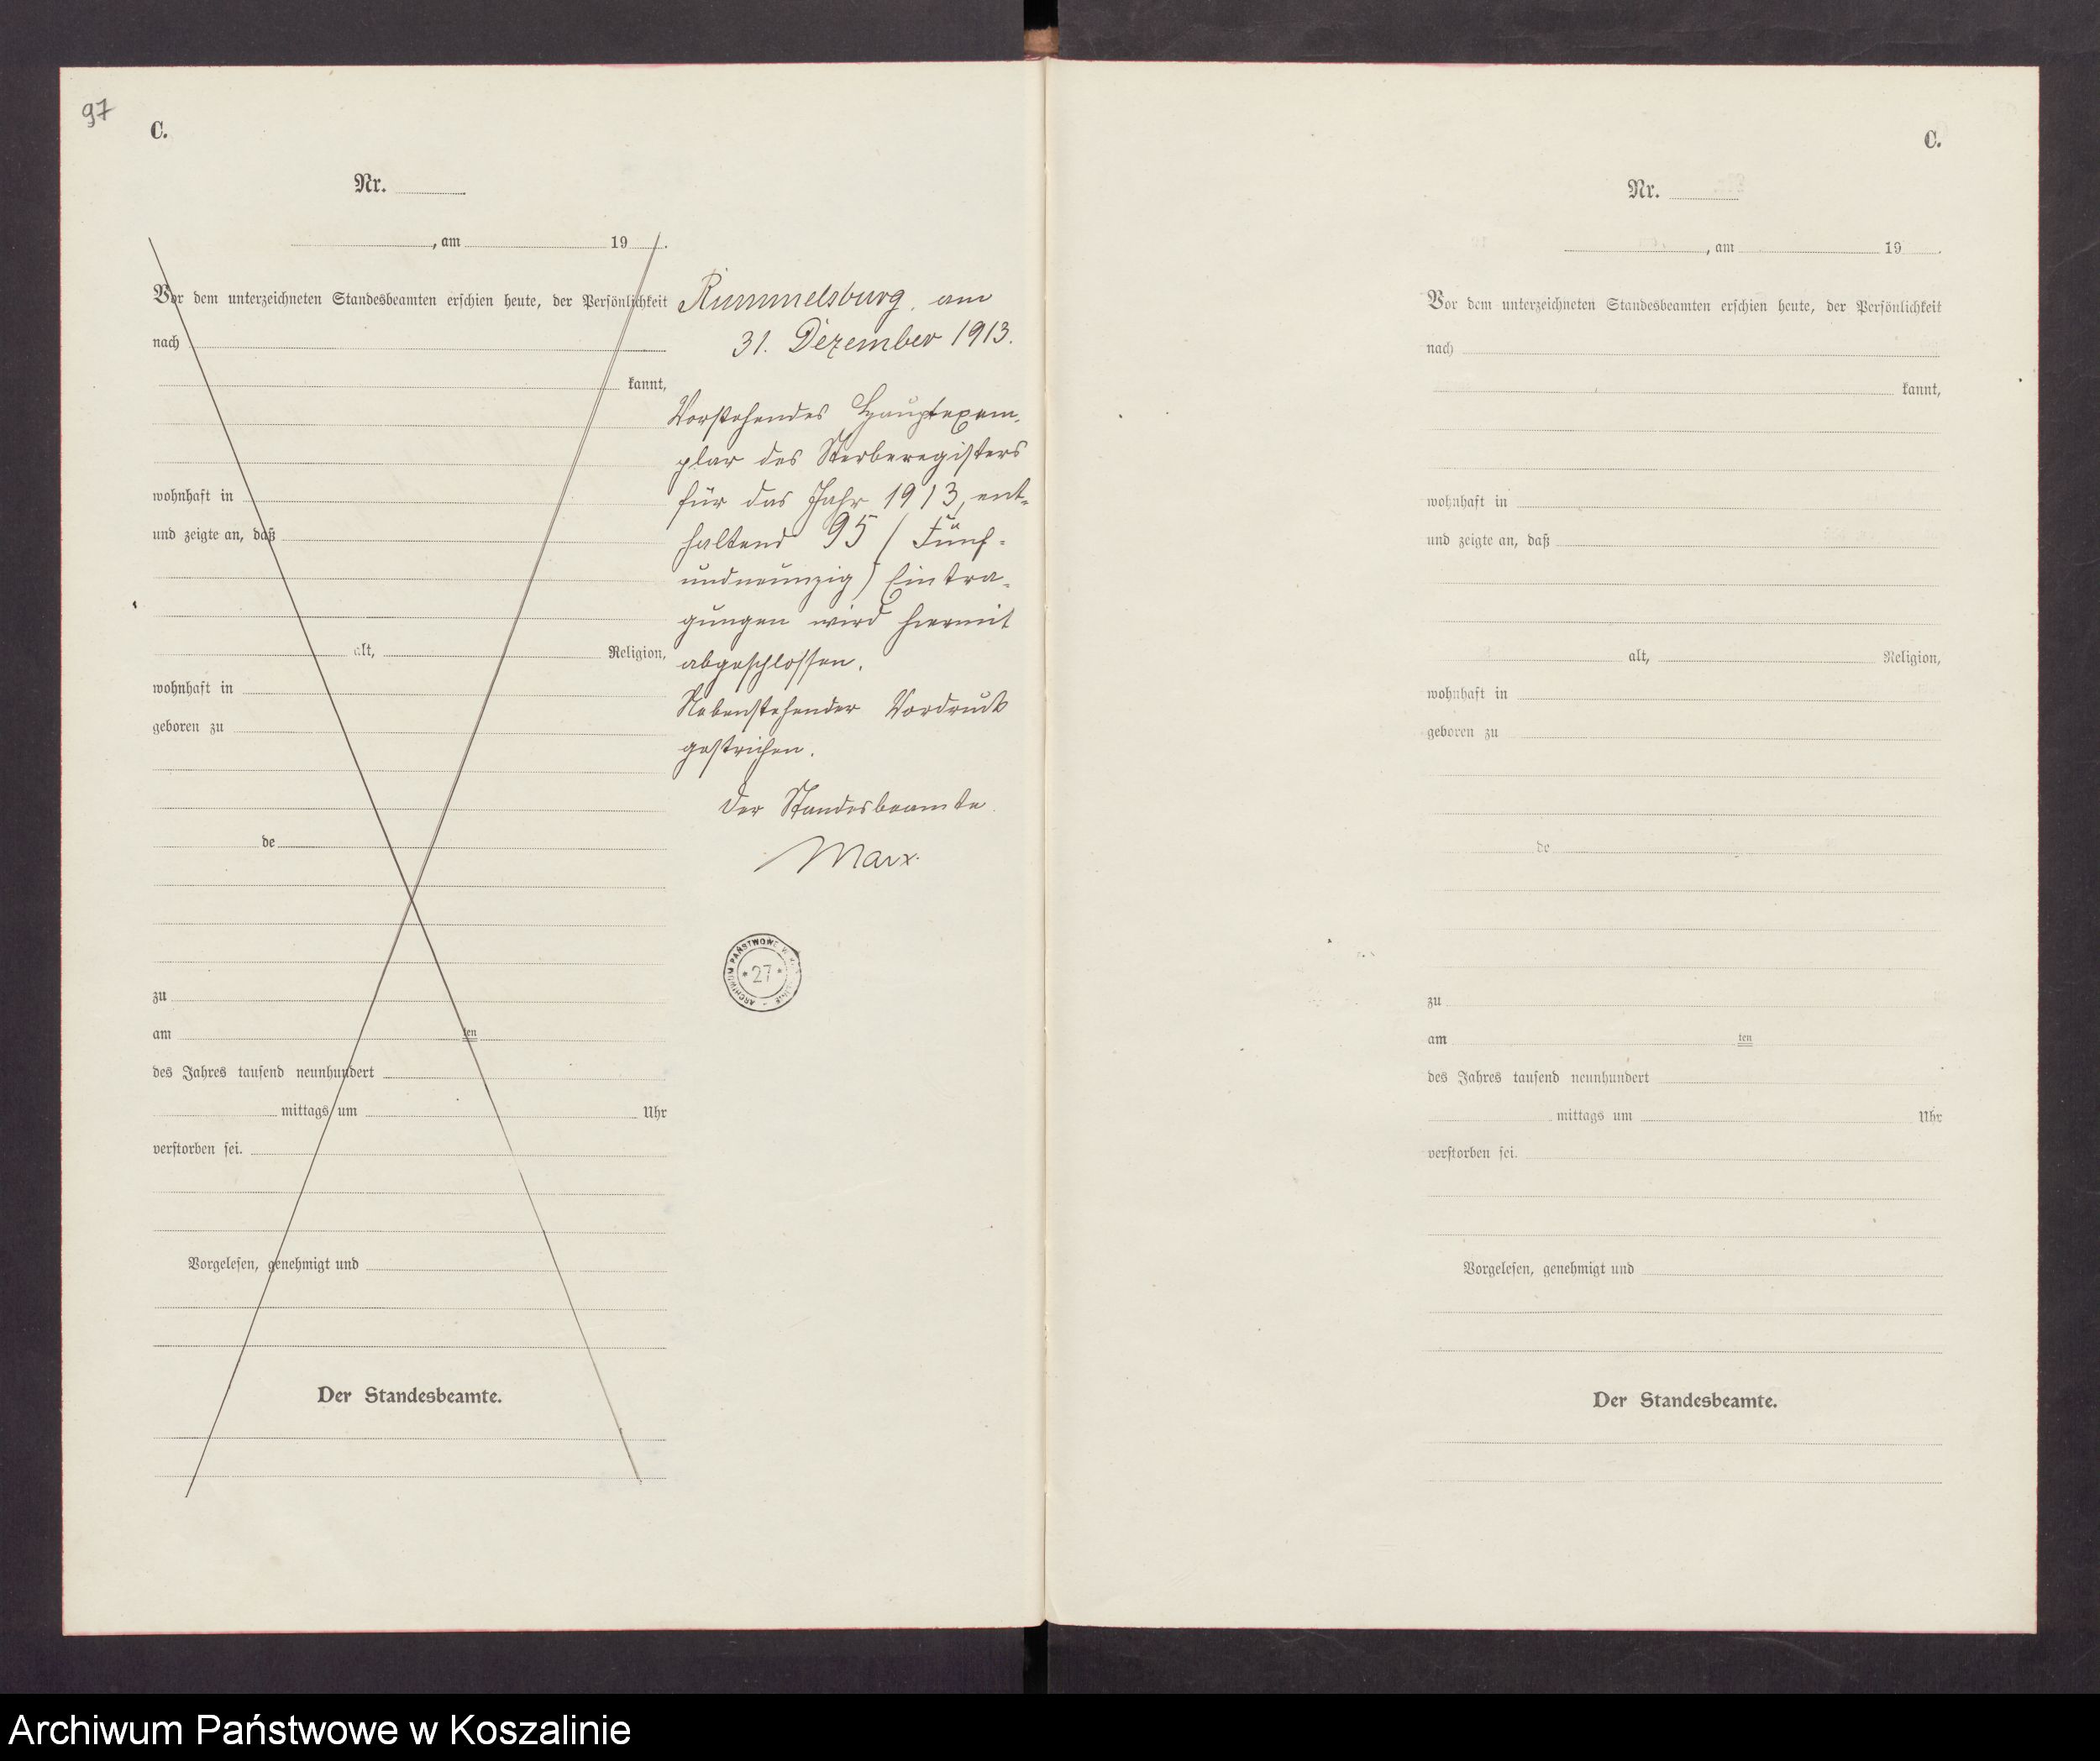 97
C.
Nr.
, am 19 .
Vor dem unterzeichneten Standesbeamten erschien heute, der Persönlichkeit
nach
kannt,
wohnhaft in
und zeigte an, daß
alt, Religion,
wohnhaft in
geboren zu
de
zu
am ten
des Jahres tausend neunhundert
mittags um Uhr
verstorben sei.
Vorgelesen, genehmigt und
Der Standesbeamte.
Rummelsburg, am
31. Dezember 1913.
Vorstehendes Hauptexem-
plar des Sterberegisters
für das Jahr 1913, ent-
haltend 95 (Fünf-
undneunzig) Eintra-
gungen wird hiermit
abgeschlossen.
Nebenstehender Vordruck
gestrichen.
Der Standesbeamte.
Marx.
ARCHIWUM PAŃSTWOWE W
* 27 *
C.
Nr.
, am 19 .
Vor dem unterzeichneten Standesbeamten erschien heute, der Persönlichkeit
nach
kannt,
wohnhaft in
und zeigte an, daß
alt, Religion,
wohnhaft in
geboren zu
de
zu
am ten
des Jahres tausend neunhundert
mittags um Uhr
verstorben sei.
Vorgelesen, genehmigt und
Der Standesbeamte.
Archiwum Państwowe w Koszalinie